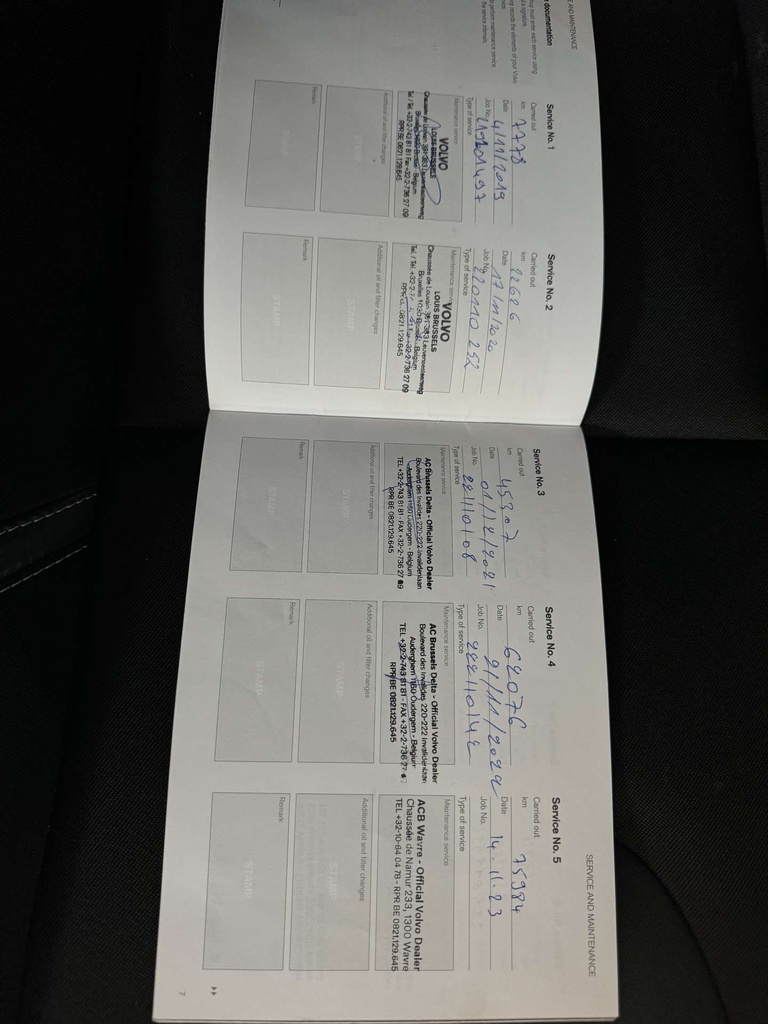 E AND MAINTENANCE
documentation
Service No. 1
Carried out
km 7778
Date 4/11/2019
Job No.
Type of service
Maintenance service
VOLVO
LOUIS BRUSSELS
Bruxelles 1030 Brussel - Belgium
Tel. / Tel. +32-2-743 81 81 Fax +32-2-736 27 09
RPR BE 0821.129.645
Additional oil and filter changes
STAMP
Remark
Service No. 2
Carried out
km 22626
Date 17/11/2020
Job No. 220110 252
Type of service
Maintenance service
VOLVO
LOUIS BRUSSELS
Chaussée de Louvain 381-383 Leuvensesteenweg
Bruxelles 1030 Brussel - Belgium
RPR 0821.129.645
Additional oil and filter changes
STAMP
Remark
STAMP
Service No. 3
Carried out
km 45307
Date 01/12/2021
Job No. 22110108
Type of service
Maintenance service
AC Brussels Delta - Official Volvo Dealer
Boulevard des Invalides 220-222 Invalidenlaan
Auderghem 1160 Oudergem - Belgium
TEL +32-2-743 81 81 - FAX +32-2-736 27 09
RPR BE 0821.129.645
Additional oil and filter changes
STAMP
Remark
STAMP
Service No. 4
Carried out
km 62076
Date 21/11/2022
Job No. 22210142
Type of service
Maintenance service
AC Brussels Delta - Official Volvo Dealer
Boulevard des Invalides 220-222 Invalidenlaan
Auderghem 1160 Oudergem - Belgium
TEL +32-2-743 81 81 - FAX +32-2-736 27
RPR BE 0821.129.645
Additional oil and filter changes
STAMP
Remark
STAMP
SERVICE AND MAINTENANCE
Service No. 5
Carried out
km 75984
Date 14.11.23
Job No.
Type of service
Maintenance service
ACB Wavre - Official Volvo Dealer
Chaussée de Namur 233, 1300 Wavre
TEL +32-10-84 04 78 - RPR BE 0821.129.645
Additional oil and filter changes
STAMP
Remark
STAMP
7